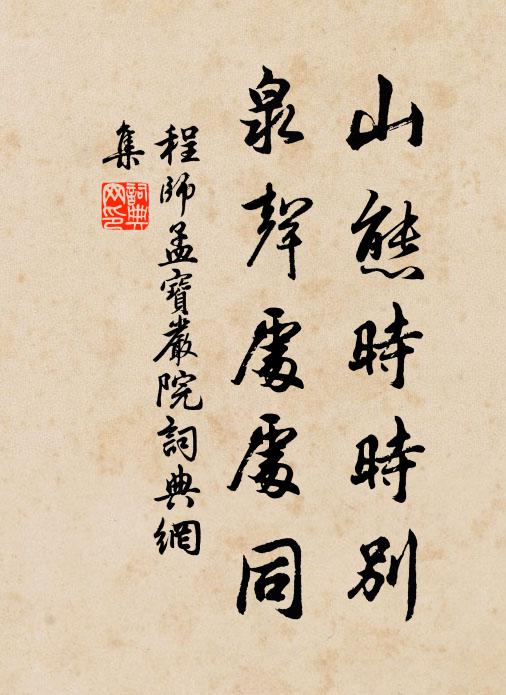 山態時時別
泉聲處處同
程師孟寶巖院詞典網
集
詞典網印